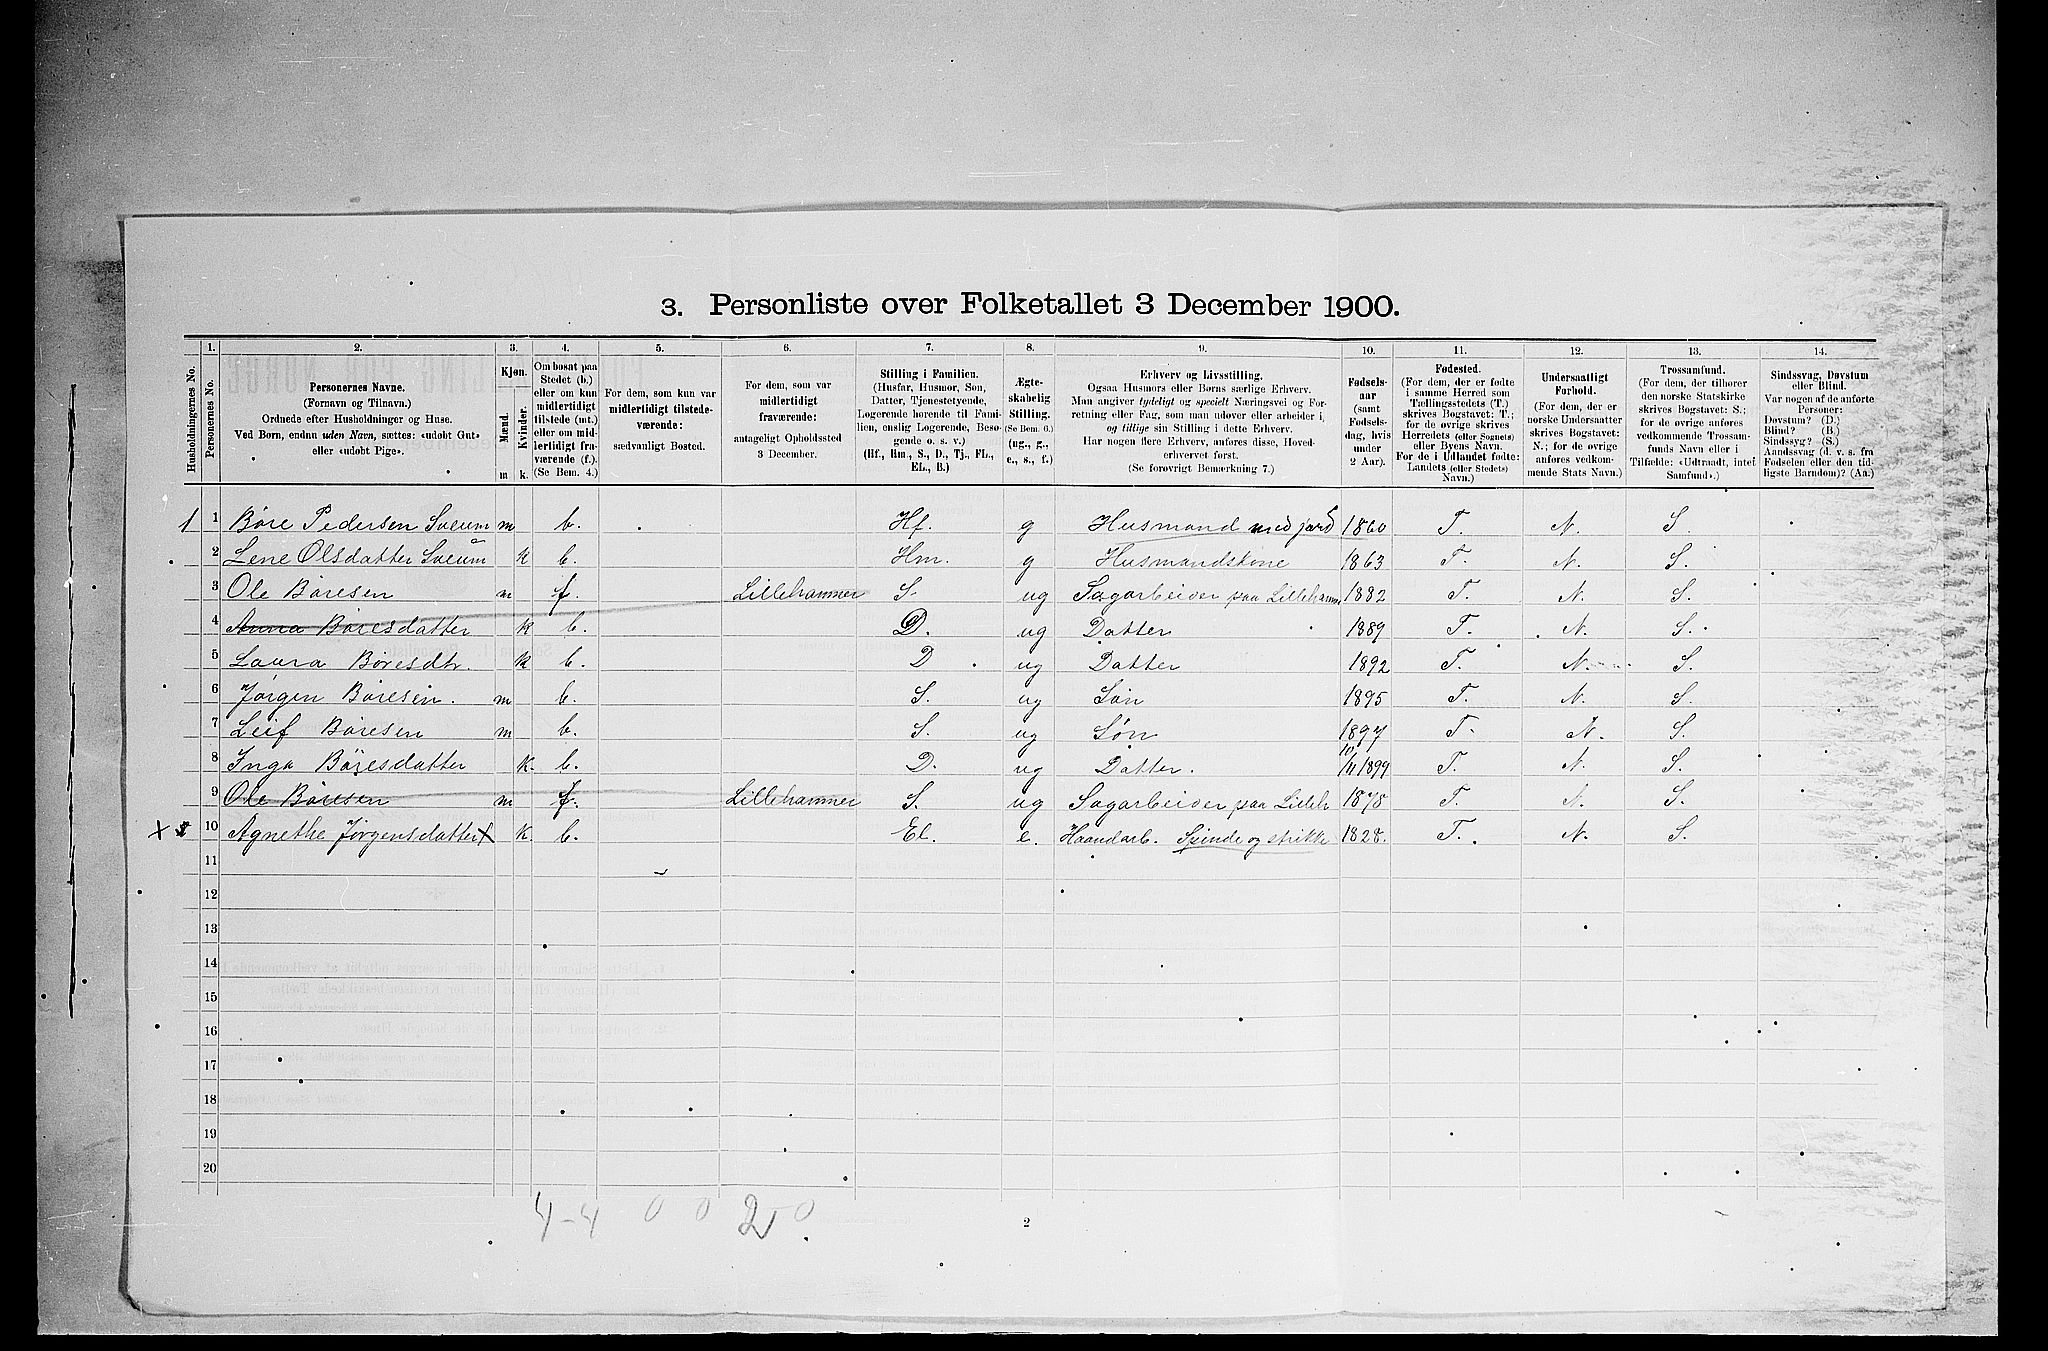 3. Personliste over Folketallet 3 December 1900.
1. 2. 3. 4. 5. 6. 7. 8. 9. 10. 11. 12. 13. 14.
Husholdningernes No.
Personernes No.
Personernes Navne.
(Fornavn og Tilnavn.)
Ordnede efter Husholdninger og Huse.
Ved Børn, endnu uden Navn, sættes: «udøbt Gut»
eller «udøbt Pige».
Kjøn.
Mænd.
Kvinder.
m k.
Om bosat paa
Stedet (b.)
eller om kun
midlertidigt
tilstede (mt.)
eller om mid-
lertidigt fra-
værende (f.)
(Se Bem. 4.)
For dem, som kun var
midlertidigt tilstede-
værende:
sædvanligt Bosted.
For dem, som var
midlertidigt
fraværende:
antageligt Opholdssted
3 December.
Stilling i Familien.
(Husfar, Husmor, Søn,
Datter, Tjenestetyende,
Logerende hørende til Fami-
lien, enslig Logerende, Besø-
gende o. s. v.)
(Hf., Hm., S., D., Tj., FL.,
EL., B.)
Ægte-
skabelig
Stilling.
(Se Bem. 6.)
(ug., g.,
e., s., f.)
Erhverv og Livsstilling.
Ogsaa Husmors eller Børns særlige Erhverv.
Man angiver tydeligt og specielt Næringsvei og For-
retning eller Fag, som man udøver eller arbeider i,
og tillige sin Stilling i dette Erhverv.
Har nogen flere Erhverv, anføres disse, Hoved-
erhvervet først.
(Se forøvrigt Bemærkning 7.)
Fødsels-
aar
(samt
Fødsels-
dag, hvis
under
2 Aar).
Fødested.
(For dem, der er fødte
i samme Herred som
Tællingsstedets (T.)
skrives Bogstavet: T.;
for de øvrige skrives
Herredets (eller Sognets)
eller Byens Navn.
For de i Udlandet fødte:
Landets (eller Stedets)
Navn.)
Undersaatligt
Forhold.
(For dem, der er
norske Undersaatter
skrives Bogstavet:
N.; for de øvrige
anføres vedkom-
mende Stats Navn.)
Trossamfund.
(For dem, der tilhører
den norske Statskirke
skrives Bogstavet: S.;
for de øvrige anføres
vedkommende Trossam-
funds Navn eller i
Tilfælde: «Udtraadt, intet
Samfund».)
Sindssvag, Døvstum
eller Blind.
Var nogen af de anførte
Personer:
Døvstum? (D.)
Blind? (B.)
Sindssyg? (S.)
Aandssvag (d. v. s. fra
Fødselen eller den tid-
ligste Barndom)? (Aa.)
1 1 Böre Pedersen Sveum m b. Hf. g Husmand med jord 1860 T. N. S.
2 Lene Olsdatter Sveum k b. Hm. g Husmandskone 1863 T. N. S.
3 Ole Böresen m f. Lillehammer S. ug Sagarbeider paa Lilleham 1882 T. N. S.
4 Anna Böresdatter k b. D. ug Datter 1889 T. N. S.
5 Laura Böresdtr. k b. D ug Datter 1892 T. N. S.
6 Jörgen Böresen. m b. S. ug Sön 1895 T. N. S.
7 Leif Böresen m b. S. ug Søn 1897 T. N. S.
8 Inga Böresdatter k. b. D. ug Datter. 10/11 1899 T. N. S.
9 Ole Böresen m f. Lillehammer S. ug Sagarbeider paa Lilleh 1878 T. N. S.
X 10 Agnethe Jørgensdatter X k. b. El. e. Haandarb. Spinde og strikke 1828. T. N. S.
11
12
13
14
15
16
17
18
19
20
4-4 0 0 2 0
2